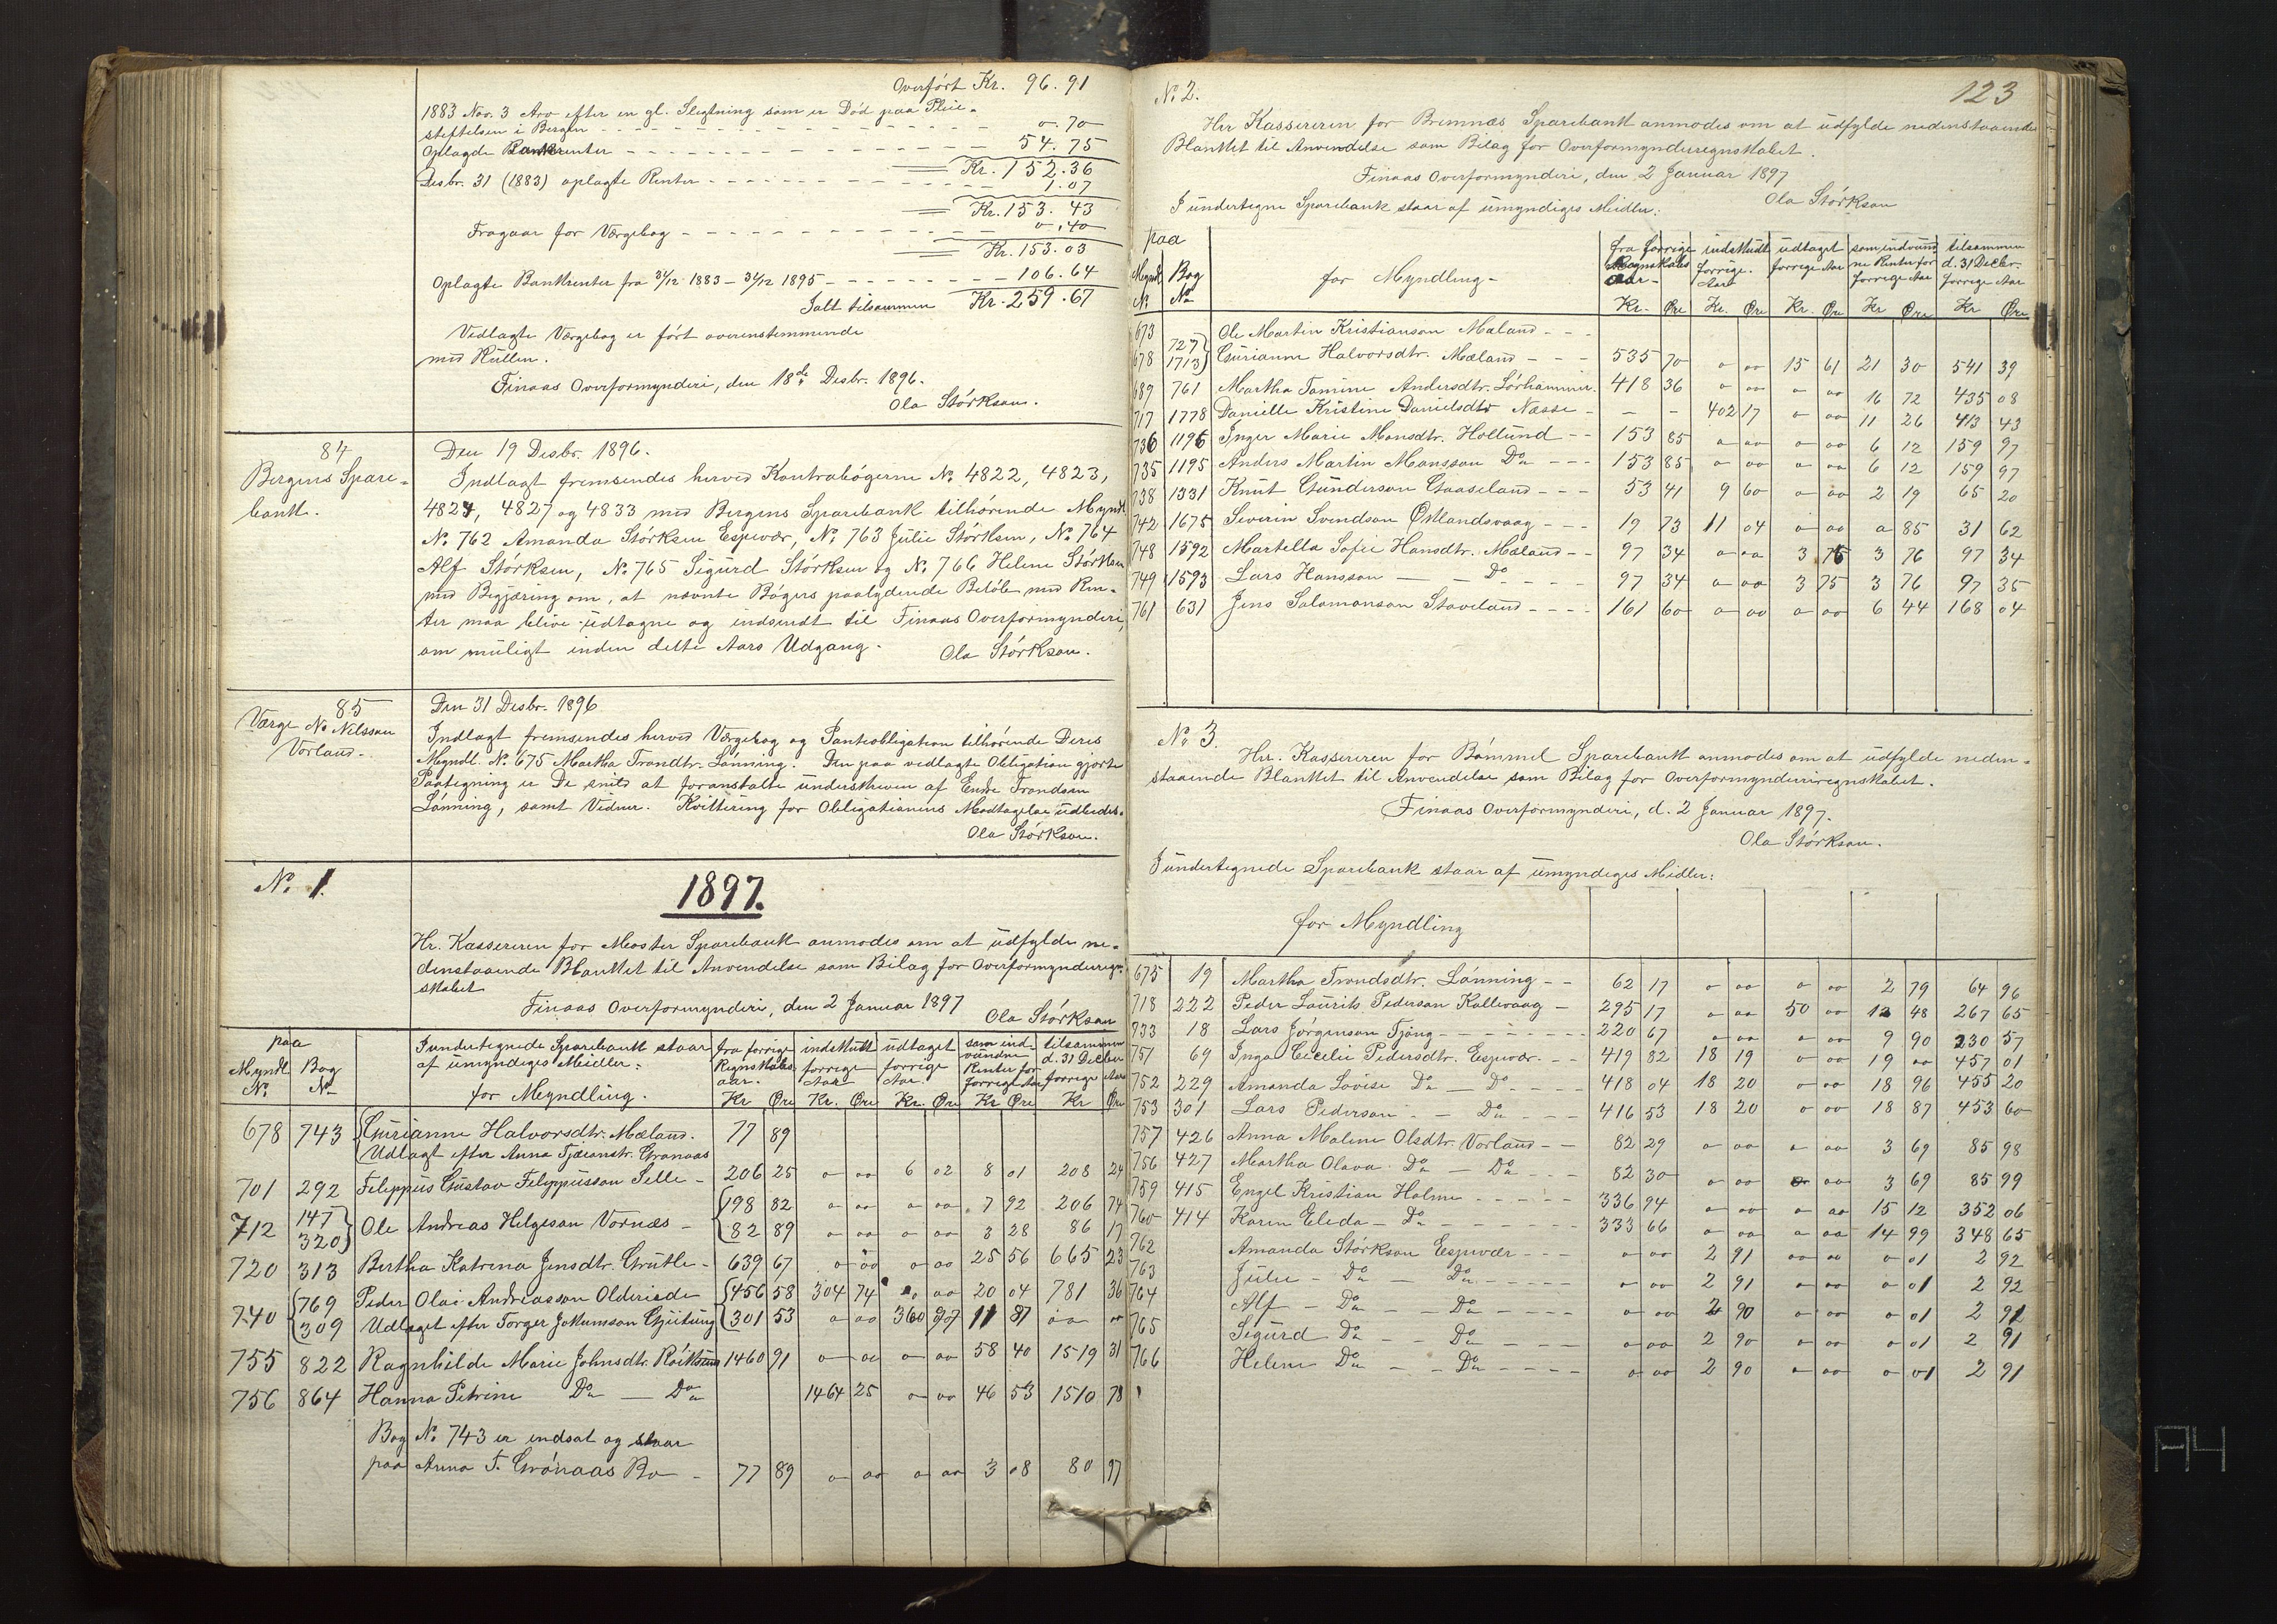 Overført Kr. 96.91
1883 Nov. 3 Arv efter en gl. Slegtning som er Død paa Pleie-
stiftelsen i Bergen - - - 0.70
Oplagde Bankrenter - - - 54.75
Kr. 152.36
Desbr. 31 (1883) oplagte Renter - - - 1.07
Kr. 153.43
Fragaar for Værgebog - - - 0.40
Kr. 153.03
Oplagte Bankrenter fra 31/12 1883 - 31/12 1895 - - - 106.64
Ialt tilsammen Kr. 259.67
Vedlagte Værgebog er ført overenstemmende
med Rullen.
Finaas Overformynderi, den 18de Desbr. 1896.
Ola Størkson.
84
Bergens Spare-
bank.
Den 19 Desbr. 1896.
Indlagt fremsendes herved Kontrabøgerne No 4822, 4823,
4824, 4827 og 4833 med Bergens Sparebank tilhørende Myndl
No. 762 Amanda Størksen Espevær, No. 763 Julie Størksen, No 764
Alf Størksen, No. 765 Sigurd Størksen og No. 766 Helene Størksen
med Begjæring om, at nævnte Bøgers paalydende Beløb med Ren-
ter maa blive udtagne og indsendt til Finaas Overformynderi,
om muligt inden dette Aars Udgang.
Ola Størkson.
85
Værge No. Nilsson
Vorland.
Den 31 Desbr. 1896
Indlagt fremsendes herved Værgebog og Panteobligation tilhørende Deres
Myndl. No. 675 Martha Trondtr. Lønning. Den paa vedlagte Obligation gjorte
Paategning er De snild at foranstalte underskreven af Endre Trondsen
Lønning, samt Vidner. Kvittering for Obligationens Modtagelse udbedes.
Ola Størkson.
No. 1.
1897.
Hr. Kassereren for Moster Sparebank anmodes om at udfylde ne-
denstaaende Blanket til Anvendelse som Bilag for Overformynderiregn-
skabet
Finaas Overformynderi, den 2 Januar 1897
Ola Størkson
paa
Myndl. No. Bog No
I undertegnede Sparebank staar
af umyndiges Midler:
for Myndling.
fra forrige Regnskabs aar. Kr Øre
indskudt forrige Aar Kr. Øre
udtaget forrige Aar. Kr. Øre
som ind- vundne Renter for forrige Aar Kr Øre
tilsammen d. 31 Decbr forrige Aar Kr Øre
678 743 Gurianne Halvorsdtr. Mæland. 77 89
Udlagt efter Anna Tjeranstr. Grønaas
701 292 Filippus Gustav Filippusson Selle - 206 25 0 00 6 02 8 01 208 24
712 147 Ole Andreas Helgeson Vornæs - 198 82 0 00 0 00 7 92 206 74
320 82 89 0 00 0 00 3 28 86 17
720 313 Bertha Katrina Jensdtr. Grutle - 639 67 0 00 0 00 25 56 665 23
740 769 Peder Olai Andreasson Oldereide 456 58 304 74 0 00 20 04 781 36
309 Udlaget efter Torger Gjeitung 301 53 0 00 360 11 87 00 00
755 822 Ragnhilde Marie Johnsdtr. 1460 91 0 00 0 00 58 40 1519 31
756 864 Hanna Petrine Do — Do 1464 25 0 00 46 53 1510 78
Bog No. 743 er indsat og staar
paa Anna T. Grønaas Bo - 77 89 0 00 0 00 3 08 80 97
No. 2.
123
Hr Kassereren for Bremnæs Sparebank anmodes om at udfylde nedenstaaende
Blanket til Anvendelse som Bilag for Overformynderegnskabet.
Finaas Overformynderi, den 2 Januar 1897
Ola Størkson
I undertegne Sparebank staar af umyndiges Midler:
paa
Myndl. No Bog No
for Myndling -
fra forrige Regnskabs aar - Kr. Øre
indskudt forrige Aar Kr. Øre
udtaget forrige Aar Kr. Øre
som indvund ne Renter for forrige Aar Kr Øre
tilsammen d. 31 Decbr. forrige Aar Kr Øre
673 727 Ole Martin Kristianson Mæland - - -
678 1713 Gurianne Halvorsdtr. Mæland - - - 535 70 0 00 15 61 21 30 541 39
689 761 Martha Tomine Andersdtr. Sørhammer. 418 36 0 00 0 00 16 72 435 08
717 1778 Danielle Kristine Danielsdtr Næsse - - - 402 17 0 00 11 26 413 43
736 1196 Inger Marie Monsdtr. Hollund - - 153 85 0 00 0 00 6 12 159 97
735 1195 Anders Martin Monsson Do - - - 153 85 0 00 0 00 6 12 159 97
738 1331 Knut Gunderson Gaaseland - - - 53 41 9 60 0 00 2 19 65 20
742 1675 Severin Svendson Østlandsvaag - - - 19 73 11 04 0 00 0 85 31 62
748 1592 Martella Sofie Hansdtr. Mæland - - 97 34 0 00 3 76 3 76 97 34
749 1593 Lars Hansson — - Do - - - 97 34 0 00 3 75 3 76 97 35
761 631 Jens Salomonson Staveland - - - - 161 60 0 00 0 00 6 44 168 04
No. 3.
Hr. Kassereren for Bømmel Sparebank anmodes om at udfylde neden-
staaende Blanket til Anvendelse som Bilag for Overformynderiregnskabet.
Finaas Overformynderi, d. 2 Januar 1897.
Ola Størkson.
I undertegnede Sparebank staar af umyndiges Midler:
for Myndling
675 19 Martha Trondsdtr. Lønning - - 62 17 0 00 0 00 2 79 64 96
718 222 Peder Laurits Pederson Kallevaag - 295 17 0 00 50 00 12 48 267 65
733 18 Lars Jørgenson Tjong - - - 220 67 0 00 0 00 9 90 230 57
751 69 Inga Cecilie Pedersdtr. Espevær. - - 419 82 18 19 0 00 19 00 457 01
752 229 Amanda Lovise Do — Do - - - 418 04 18 20 0 00 18 96 455 20
753 301 Lars Pederson - — Do - - - 416 53 18 20 0 00 18 87 453 60
757 426 Anna Malene Olsdtr. Vorland - - 82 29 0 00 0 00 3 69 85 98
756 427 Martha Olava Do — Do - - 82 30 0 00 0 00 3 69 85 99
759 415 Engel Kristian Holme - - - 336 94 0 00 0 00 15 12 352 06
760 414 Karen Elida - Do - - - 333 66 0 00 0 00 14 99 348 65
762 Amanda Størkson Espevær - - - 0 00 2 91 00 00 0 01 2 92
763 Julie - Do — Do - - - 0 00 2 91 0 00 0 01 2 92
764 Alf - Do - - Do - - - 0 00 2 90 0 00 0 01 2 91
765 Sigurd Do - - Do - - - 0 00 2 90 0 00 0 01 2 91
766 Helene Do - - Do - - - 0 00 2 90 0 00 0 01 2 91